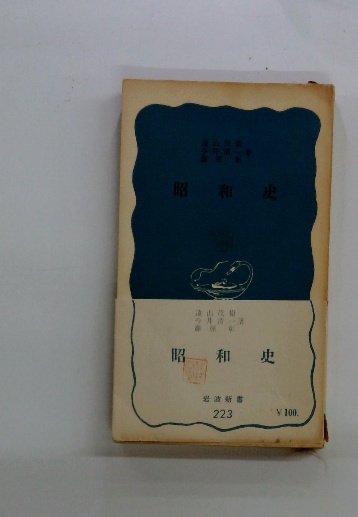 遠山茂樹
今井清一著
藤原彰
昭和史
遠山茂樹
今井清一著
藤原彰
昭和史
岩波新書
223
¥100.